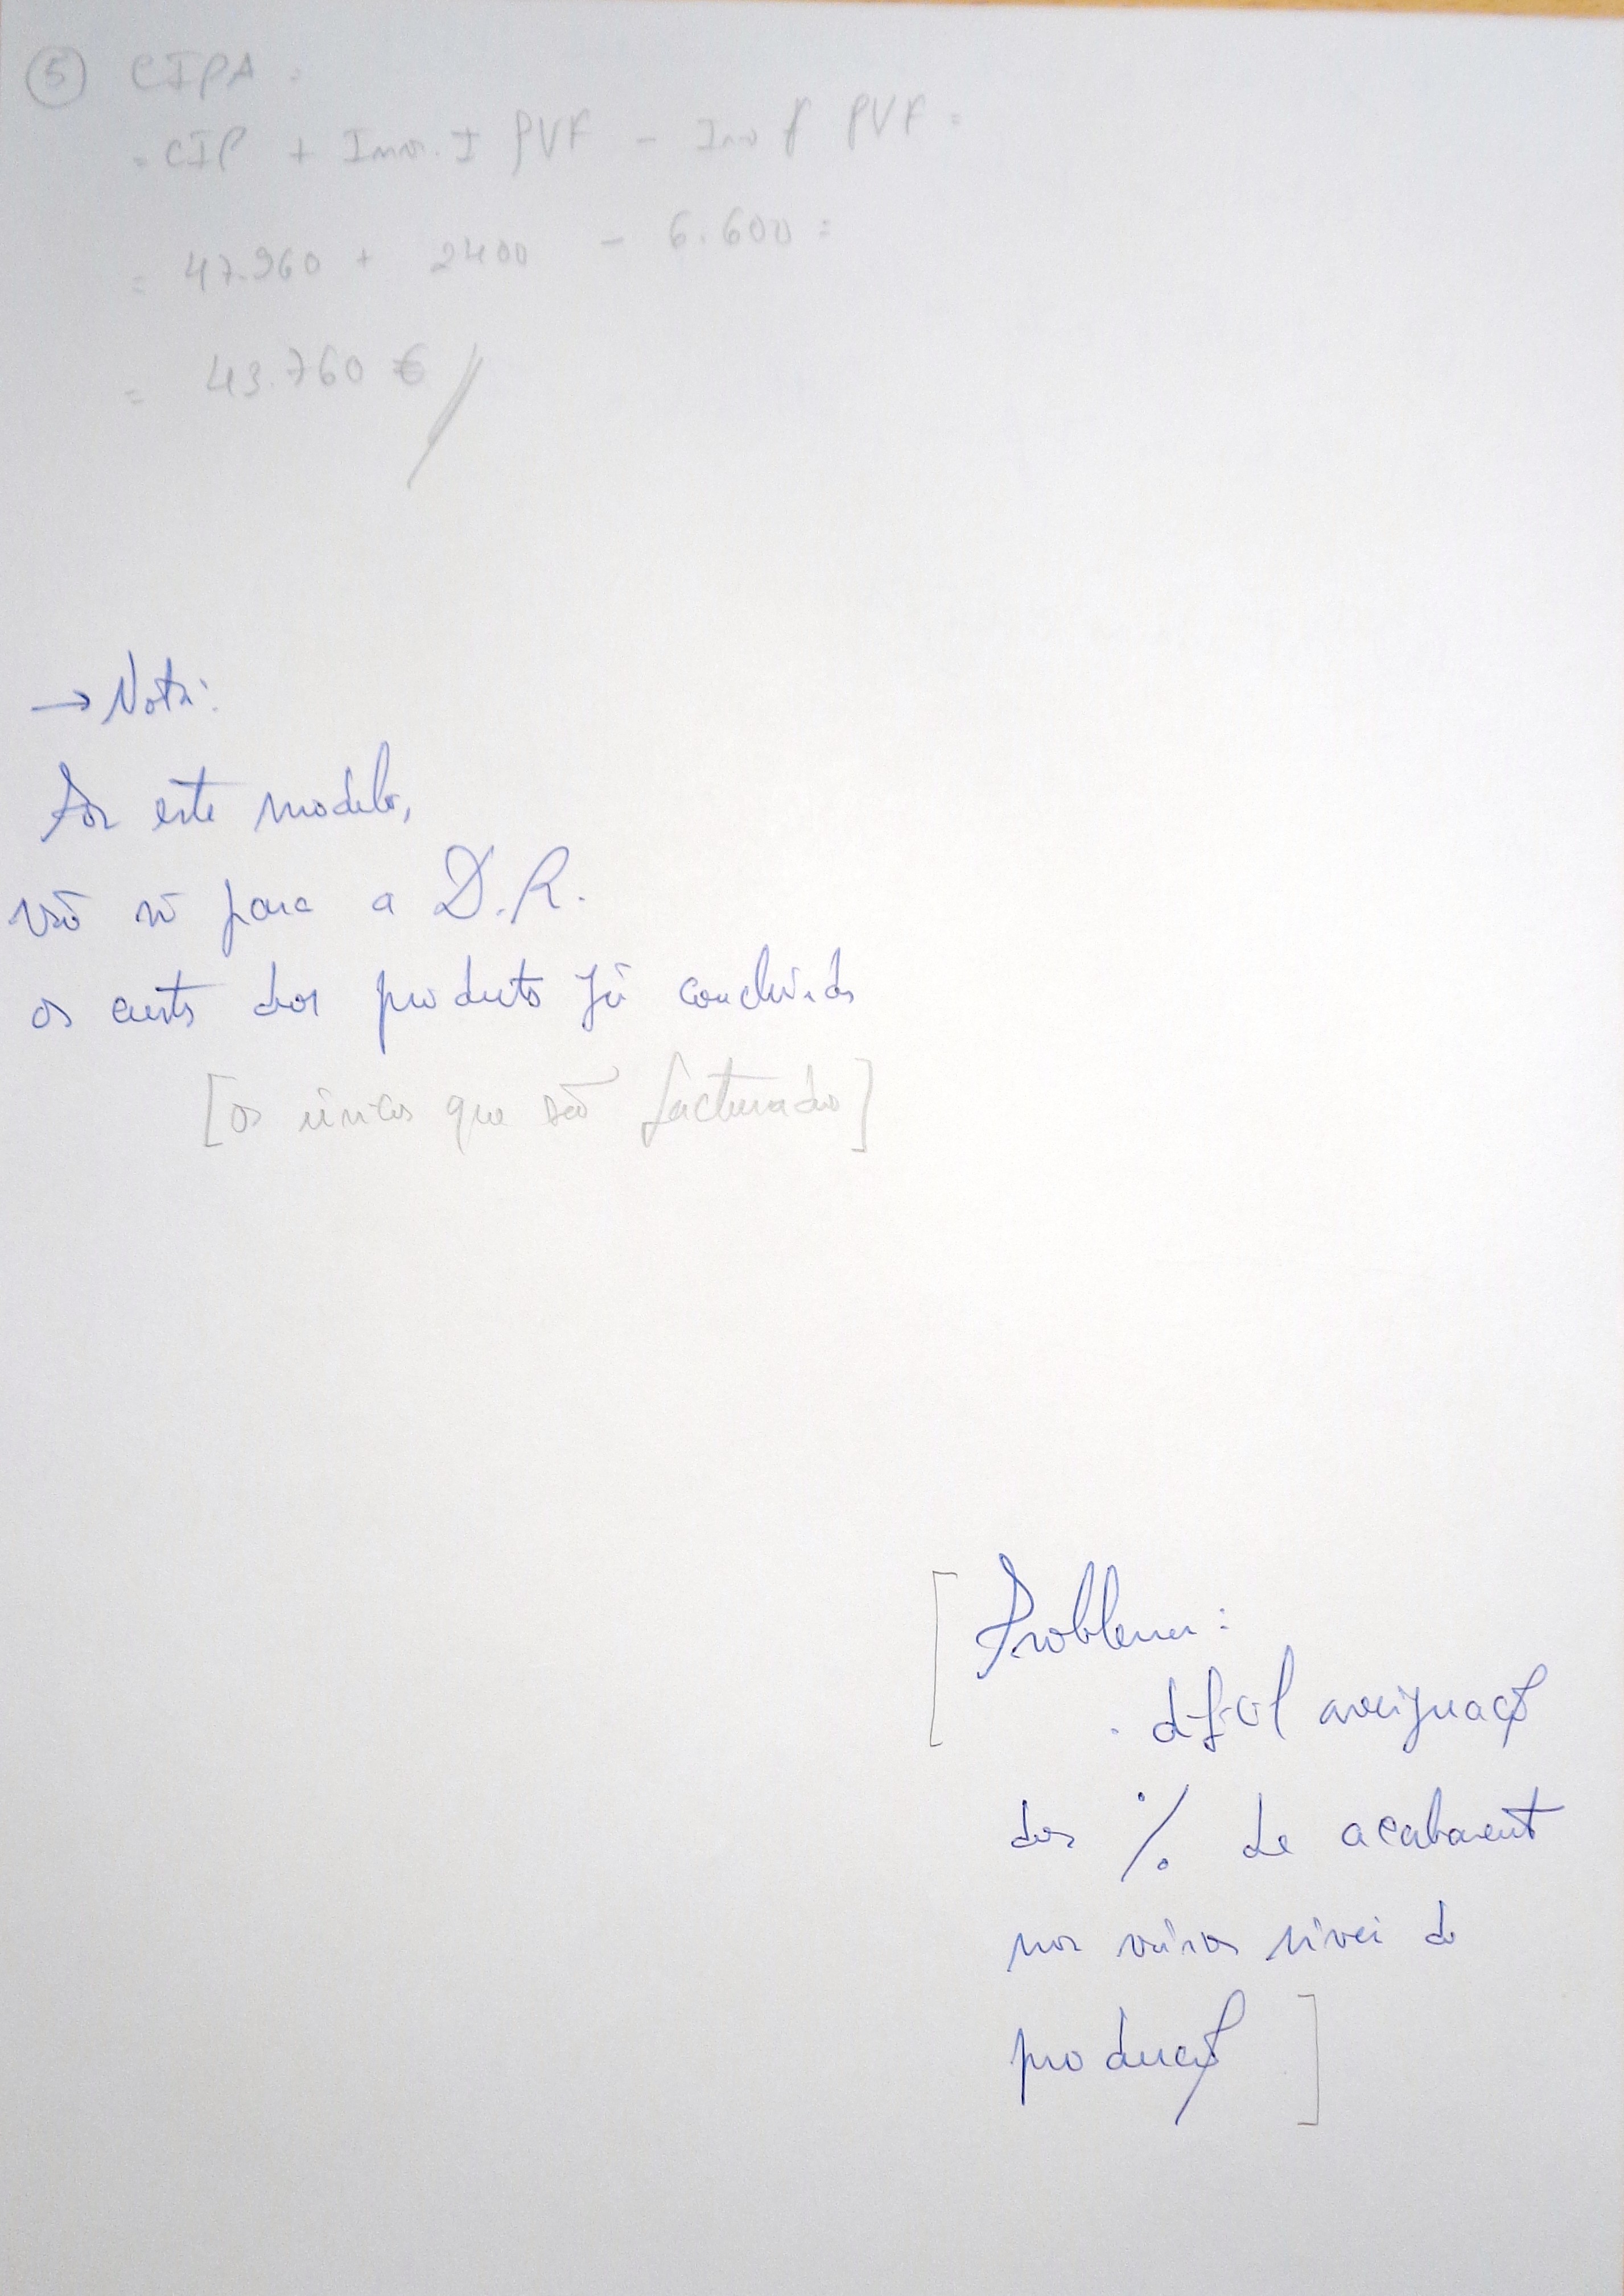 ⑤ CIPA =
= CIP + Inv. I PVF - Inv f PVF =
= 47.960 + 2400 - 6.600 =
= 43.760 €
→ Nota:
Por este modelo,
vão só para a D.R.
os custos dos produtos já concluídos
[os únicos que são facturados]
[Problema:
. difícil averiguação
das % de acabamento
nos vários níveis de
produção]